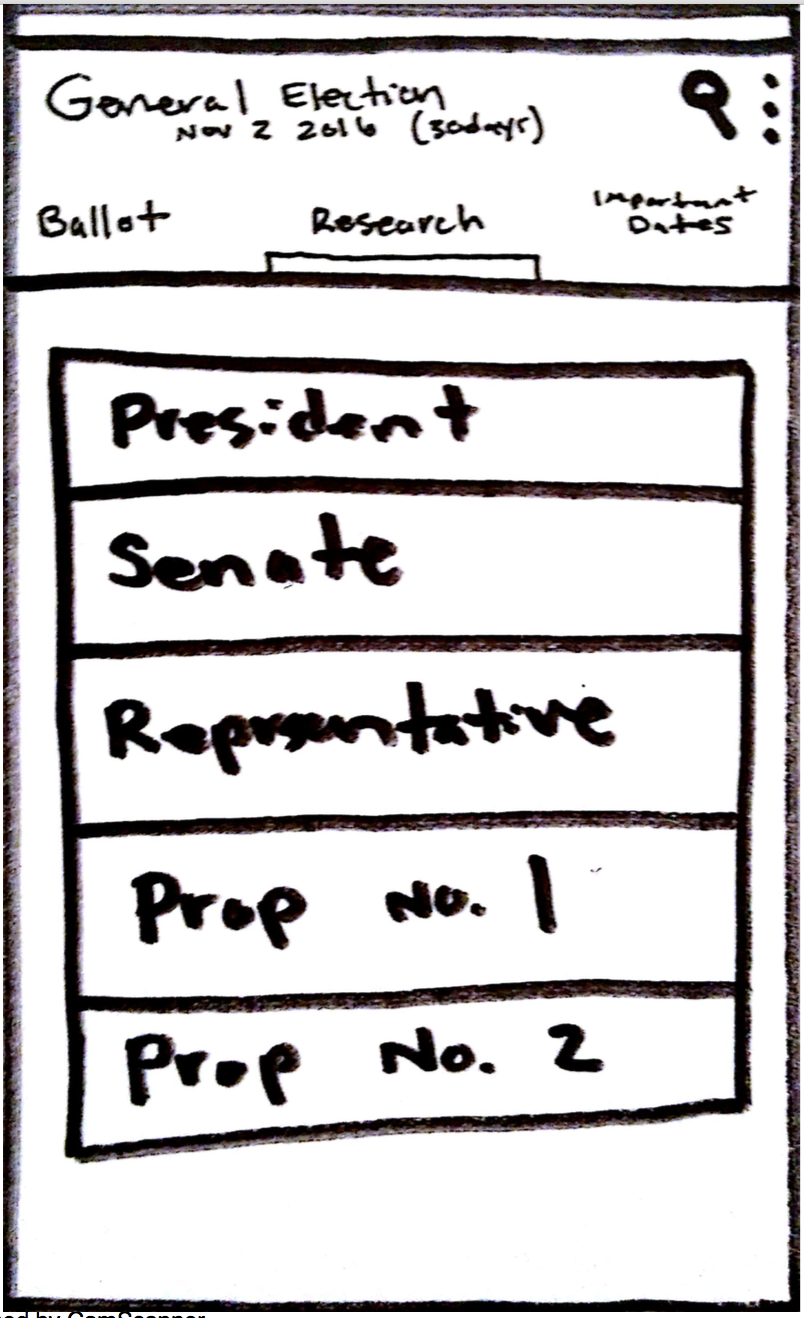 General Election
Nov 2 2016 (30days)
Ballot
Research
Important
Dates
President
Senate
Represntative
Prop No. 1
Prop No. 2
ed by CamScanner